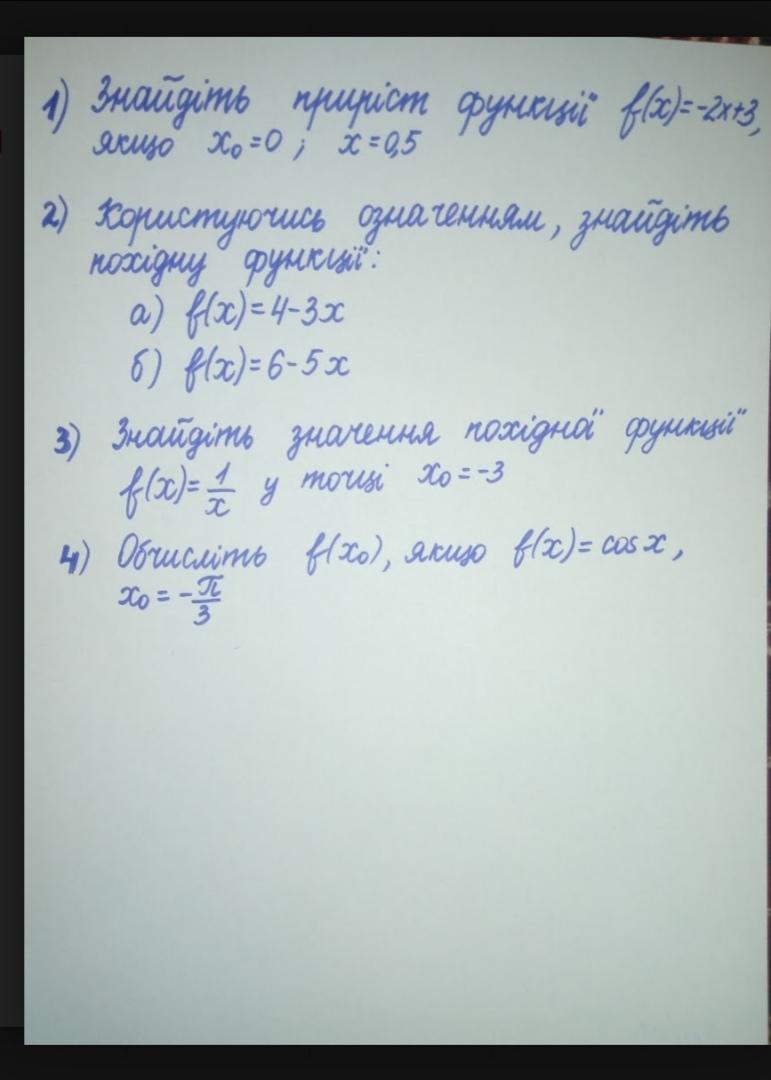 1) Знайдіть приріст функції f(x)=-2x+3,
якщо x₀=0; x=0,5
2) Користуючись означенням, знайдіть
похідну функції:
а) f(x)=4-3x
б) f(x)=6-5x
3) Знайдіть значення похідної функції
f(x)=1/x у точці x₀=-3
4) Обчисліть f(x₀), якщо f(x)=cosx,
x₀=-π/3